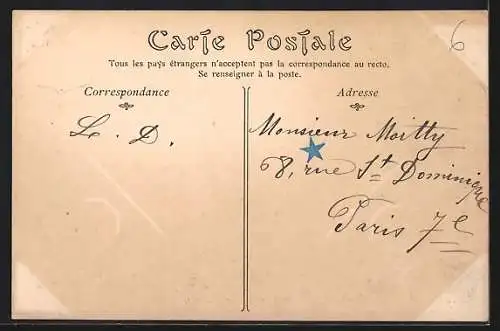 Carte Postale
Tous les pays étrangers n'acceptent pas la correspondance au recto.
Se renseigner à la poste.
Correspondance
Adresse
L. D.
Monsieur Moitty
68, rue St Dominique
Paris 7e
6